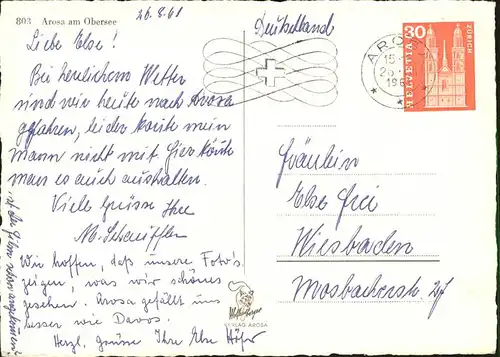 803 Arosa am Obersee
26.8.61
Liebe Else!
Bei herrlichem Wetter
sind wir heute nach Arosa
gefahren, leider konnte mein
Mann nicht mit. Hier könnte
man es auch aushalten.
Viele Grüsse Ihre
M.
Wir hoffen, daß unsere Foto's
zeigen, was wir schönes
gesehen. Arosa gefällt uns
besser wie Davos.
Herzl. Grüsse Ihre Else Höfer
ist der Film schon angekommen?
Deutschland
AROSA
15
26
196
HELVETIA
30
ZÜRICH
Fräulein
Else Frei
Wiesbaden
Mosbacherstr.
VERLAG AROSA